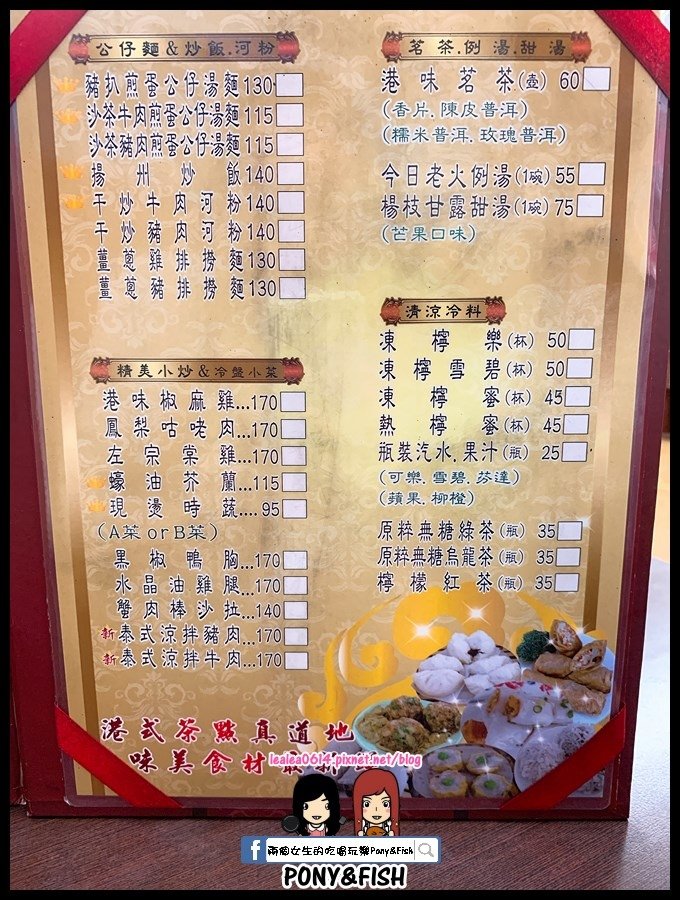 公仔麵&炒飯.河粉
豬扒煎蛋公仔湯麵130
沙茶牛肉煎蛋公仔湯麵115
沙茶豬肉煎蛋公仔湯麵115
揚州炒飯140
干炒牛肉河粉140
干炒豬肉河粉140
薑蔥雞排撈麵130
薑蔥豬排撈麵130
精美小炒&冷盤小菜
港味椒麻雞...170
鳳梨咕咾肉...170
左宗棠雞...170
蠔油芥蘭...115
現燙時蔬....95
(A菜orB菜)
黑椒鴨胸...170
水晶油雞腿...170
蟹肉棒沙拉...140
新泰式涼拌豬肉...170
新泰式涼拌牛肉...170
茗茶.例湯.甜湯
港味茗茶(壺) 60
(香片.陳皮普洱)
(糯米普洱.玫瑰普洱)
今日老火例湯(1碗) 55
楊枝甘露甜湯(1碗) 75
(芒果口味)
清涼冷料
凍檸樂(杯) 50
凍檸雪碧(杯) 50
凍檸蜜(杯) 45
熱檸蜜(杯) 45
瓶裝汽水.果汁(瓶) 25
(可樂.雪碧.芬達)
(蘋果.柳橙)
原粹無糖綠茶(瓶) 35
原粹無糖烏龍茶(瓶) 35
檸檬紅茶(瓶) 35
港式茶點真道地
味美食材最新
lealea0614.pixnet.net/blog
兩個女生的吃喝玩樂Pony&Fish
PONY&FISH